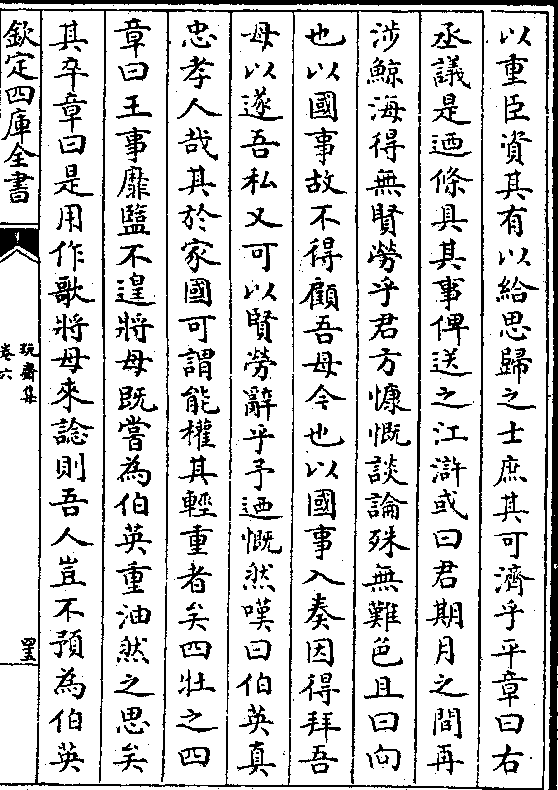 以重臣資其有以給思歸之士庶其可濟乎平章曰右
丞議是迺條具其事俾送之江滸或曰君期月之間再
涉鯨海得無賢勞乎君方慷慨談論殊無難色且曰向
也以國事故不得顧吾母今也以國事入奏因得拜吾
母以遂吾私又可以賢勞辭乎予迺慨然嘆曰伯英真
忠孝人哉其於家國可謂能權其輕重者矣四牡之四
章曰王事靡盬不遑將母既嘗為伯英重油然之思矣
其卒章曰是用作歌將母來諗則吾人豈不預為伯英
欽定四庫全書
玩齋集
卷六